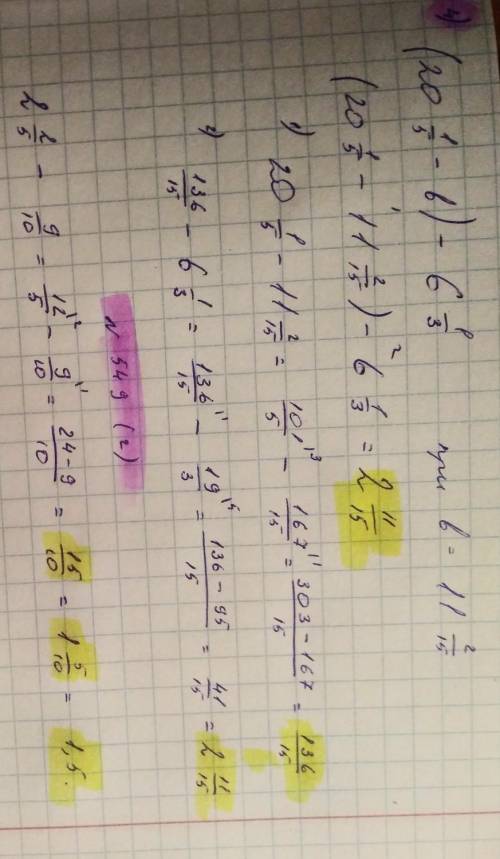 4) (20 1/5 - b) - 6 1/3 при b = 11 2/15
(20 1/5 -¹ 11 2/15) -² 6 1/3 = 2 11/15
1) 20 1/5 - 11 2/15 = 101/5 \3 - 167/15 \1 = (303 - 167)/15 = 136/15
2) 136/15 - 6 1/3 = 136/15 \1 - 19/3 \5 = (136 - 95)/15 = 41/15 = 2 11/15
N 549 (2)
2 2/5 - 9/10 = 12/5 \2 - 9/10 \1 = (24 - 9)/10 = 15/10 = 1 5/10 = 1,5.